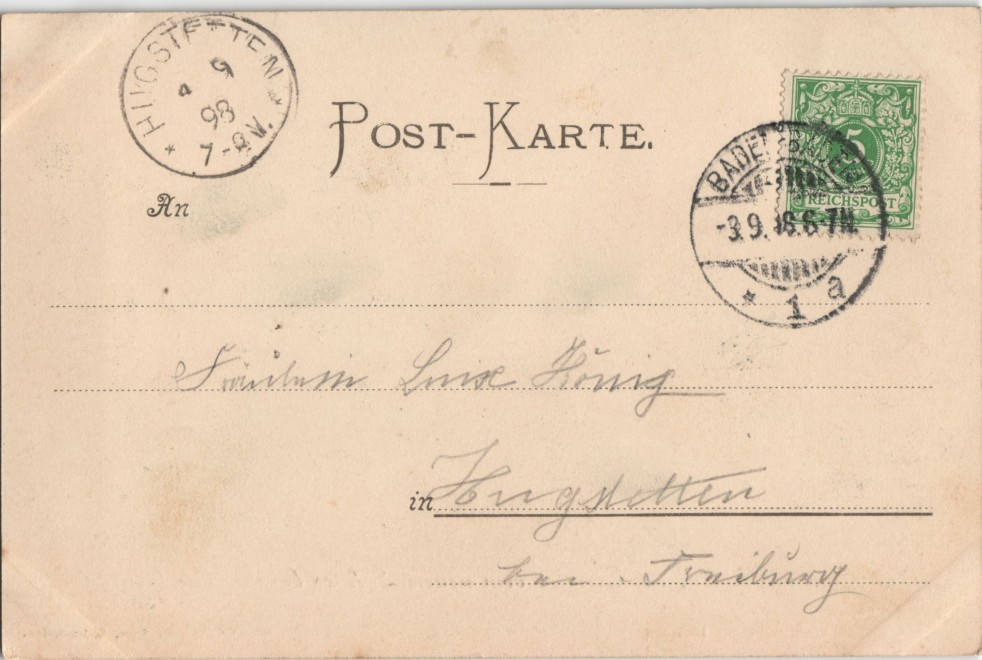 HUGSTETTEN
4 9
98
7-8V.
POST-KARTE.
5
REICHSPOST
BADEN-BADEN
-3.9.98.6-7N.
* 1 a
An
Fräulein Luise König
in Hugstetten
bei Freiburg